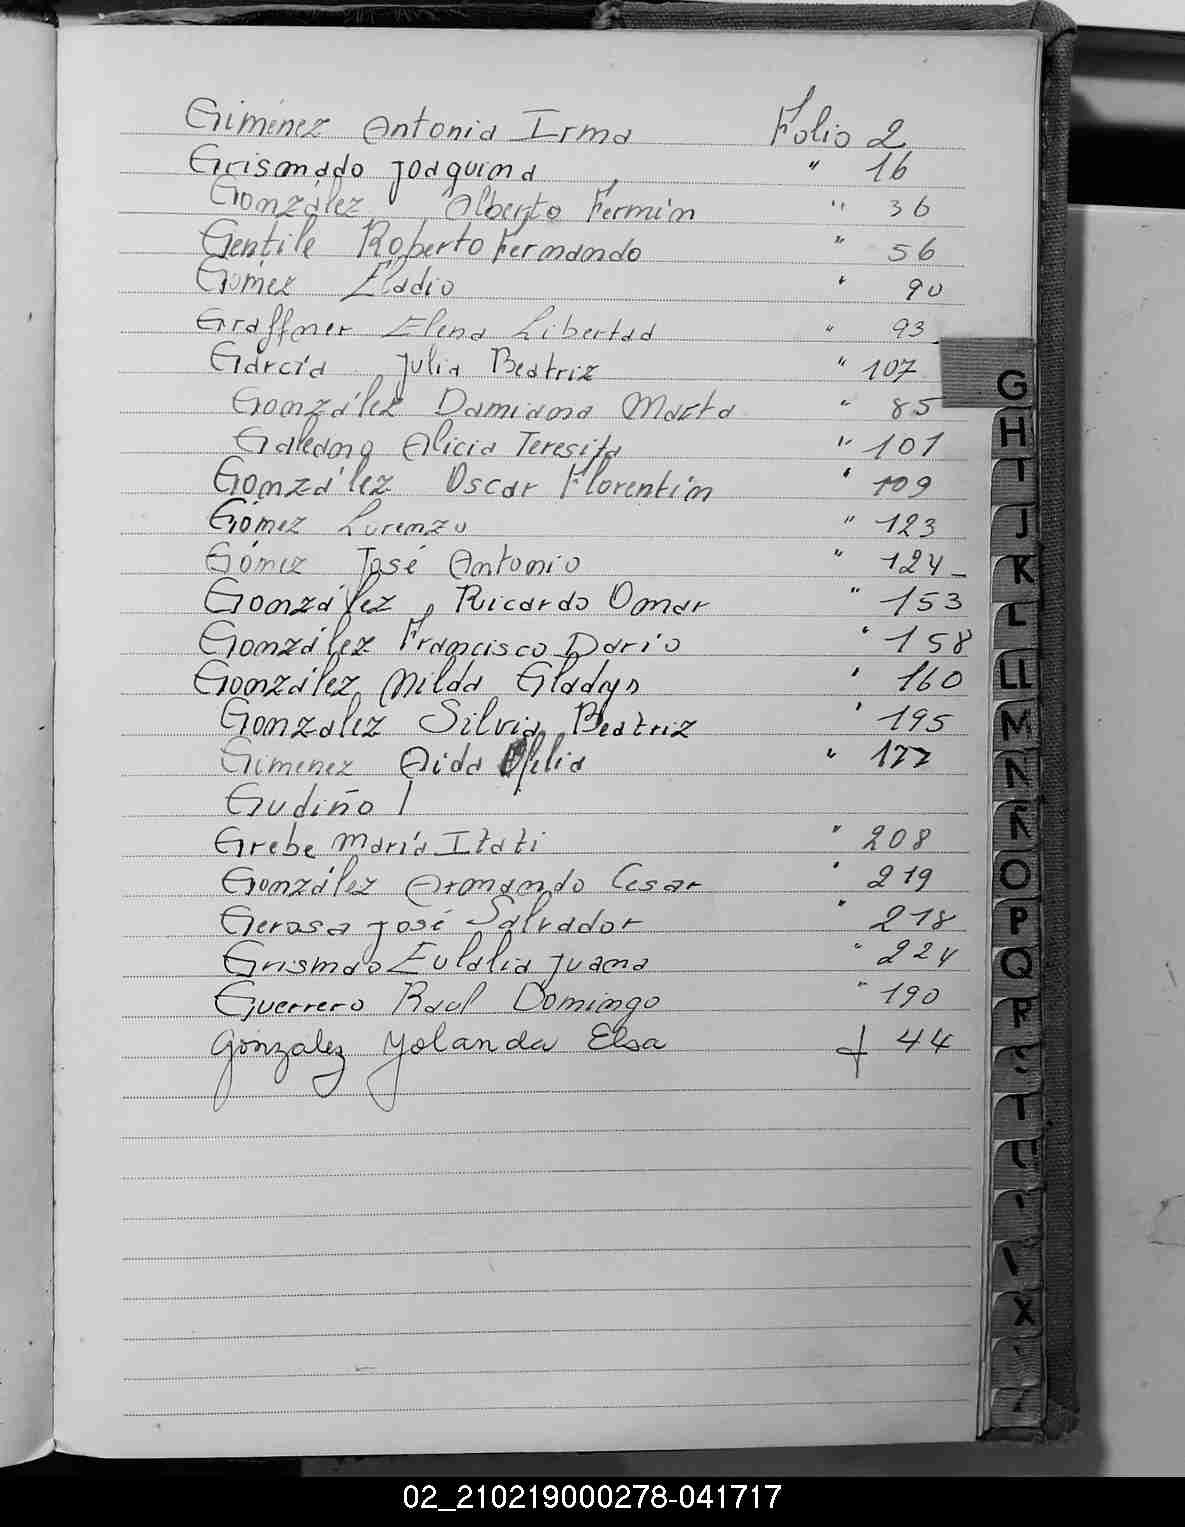 Giménez Antonia Irma Folio 2
Grismado Joaquina " 16
González Alberto Fermín " 36
Gentile Roberto Fernando " 56
Gómez Eladio " 90
Graffner Elena Libertad " 93
García Julia Beatriz " 107
González Damiana Marta " 85
Galeano Alicia Teresita " 101
González Oscar Florentín " 109
Gómez Lorenzo " 123
Gómez José Antonio " 124
González, Ricardo Omar " 153
González Francisco Darío " 158
González, Nilda Gladys " 160
Gonzalez Silvia Beatriz " 195
Gimenez Aida Ofelia " 177
Gudiño
Grebe María Itatí " 208
González Armando Cesar " 219
Gerosa José Salvador " 218
Grismdo Eulalia Juana " 224
Guerrero Raul Domingo " 190
Gonzalez Yolanda Elsa f 44
G
H
I
J
K
L
LL
M
N
Ñ
O
P
Q
R
X
02_210219000278-041717